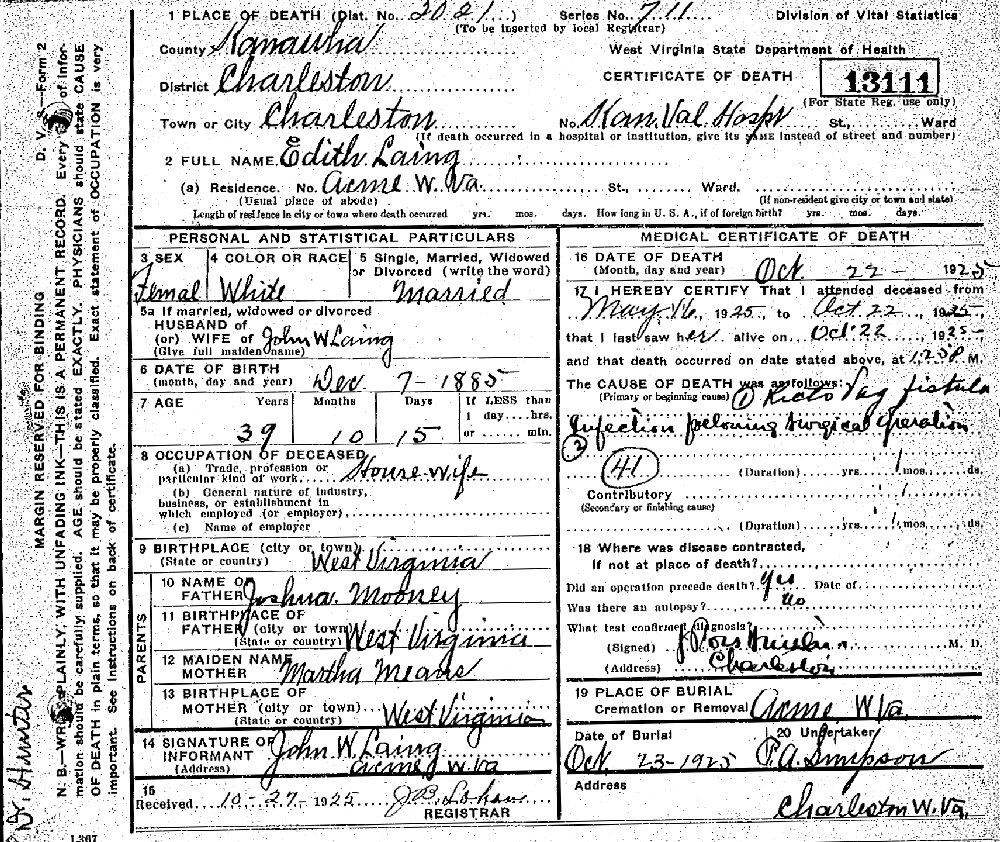 1 PLACE OF DEATH (Dist. No. 2021 ) Series No. 711 Division of Vital Statistics
(To be inserted by local Registrar)
County Kanawha West Virginia State Department of Health
District Charleston CERTIFICATE OF DEATH 13111
(For State Reg. use only)
Town or City Charleston No. Kan. Val. Hospt St., Ward
(If death occurred in a hospital or institution, give its NAME instead of street and number)
2 FULL NAME Edith Laing
(a) Residence. No. Acme W. Va. St., Ward.
(Usual place of abode) (If non-resident give city or town and state)
Length of residence in city or town where death occurred yrs. mos. days. How long in U. S. A., if of foreign birth? yrs. mos. days.
PERSONAL AND STATISTICAL PARTICULARS
3 SEX 4 COLOR OR RACE 5 Single, Married, Widowed
or Divorced (write the word)
Femal White Married
5a If married, widowed or divorced
HUSBAND of
(or) WIFE of John W Laing
(Give full maiden name)
6 DATE OF BIRTH
(month, day and year) Dec 7-1885
7 AGE Years Months Days If LESS than
1 day....hrs.
39 10 15 or ...... min.
8 OCCUPATION OF DECEASED
(a) Trade, profession or
particular kind of work House wife
(b) General nature of industry,
business, or establishment in
which employed (or employer)
(c) Name of employer
9 BIRTHPLACE (city or town)
(State or country) West Virginia
PARENTS
10 NAME OF
FATHER Joshua Mooney
11 BIRTHPLACE OF
FATHER (city or town)
(State or country) West Virginia
12 MAIDEN NAME
MOTHER Martha Means
13 BIRTHPLACE OF
MOTHER (city or town)
(State or country) West Virginia
14 SIGNATURE OF
INFORMANT John W. Laing
(Address) Acme W. Va
15
Received 10-27-1925
REGISTRAR
MEDICAL CERTIFICATE OF DEATH
16 DATE OF DEATH
(Month, day and year) Oct 22 - 1925
17 I HEREBY CERTIFY That I attended deceased from
May 16, 1925, to Oct 22, 1925,
that I last saw her alive on Oct 22 1925
and that death occurred on date stated above, at M.
The CAUSE OF DEATH was as follows:
(Primary or beginning cause) (1) Recto Vag fistula
Infection following surgical operation
(41)
(Duration) yrs. mos. ds.
Contributory
(Secondary or finishing cause)
(Duration) yrs. mos. ds.
18 Where was disease contracted,
If not at place of death?
Did an operation precede death? yes Date of
Was there an autopsy? no
What test confirmed diagnosis?
(Signed) M. D.
(Address) Charleston
19 PLACE OF BURIAL
Cremation or Removal Acme, W Va.
Date of Burial 20 Undertaker
Oct 23-1925 P.A. Simpson
Address
Charleston W. Va.
D. V. S.—Form 2
MARGIN RESERVED FOR BINDING
N. B.—WRITE PLAINLY, WITH UNFADING INK—THIS IS A PERMANENT RECORD. Every of infor-
mation should be carefully supplied. AGE should be stated EXACTLY. PHYSICIANS should state CAUSE
OF DEATH in plain terms, so that it may be properly classified. Exact statement of OCCUPATION is very
important. See instructions on back of certificate.
Dr. Hunter
1367